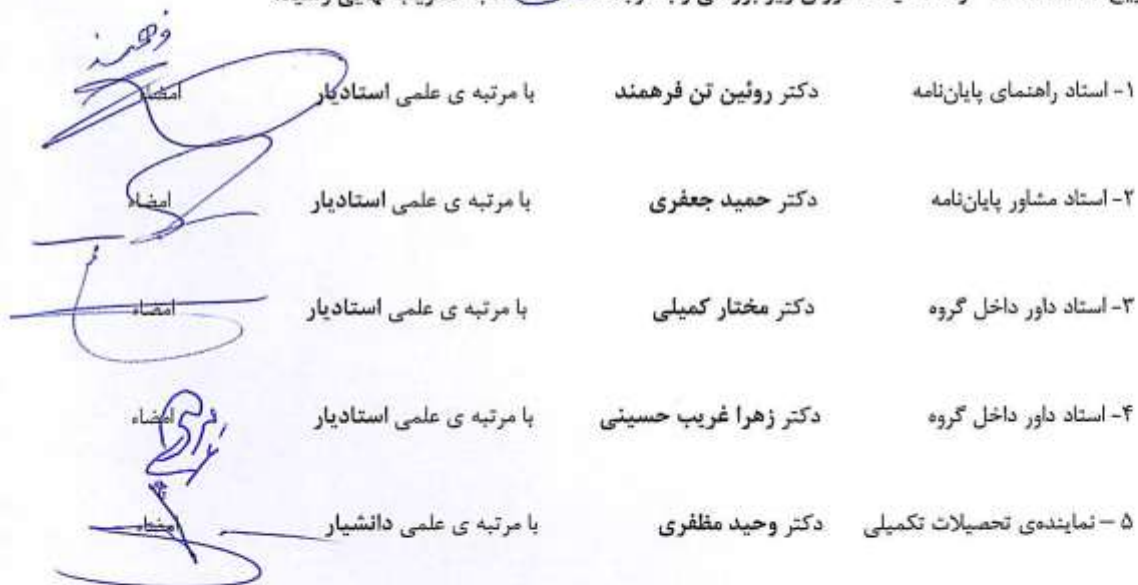 ۱- استاد راهنمای پایان‌نامه دکتر روئین تن فرهمند با مرتبه ی علمی استادیار امضاء
۲- استاد مشاور پایان‌نامه دکتر حمید جعفری با مرتبه ی علمی استادیار امضاء
۳- استاد داور داخل گروه دکتر مختار کمیلی با مرتبه ی علمی استادیار امضاء
۴- استاد داور داخل گروه دکتر زهرا غریب حسینی با مرتبه ی علمی استادیار امضاء
۵ – نماینده‌ی تحصیلات تکمیلی دکتر وحید مظفری با مرتبه ی علمی دانشیار امضاء